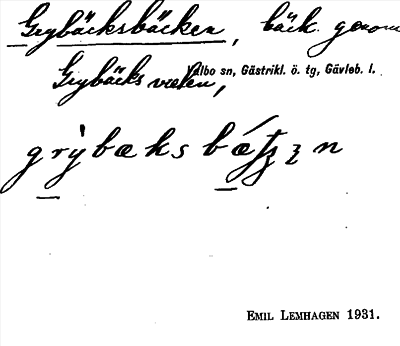 Grybäcksbäcken, bäck genom
Grybäcks veten,
Valbo sn, Gästrikl. ö. tg, Gävleb. l.
EMIL LEMHAGEN 1931.